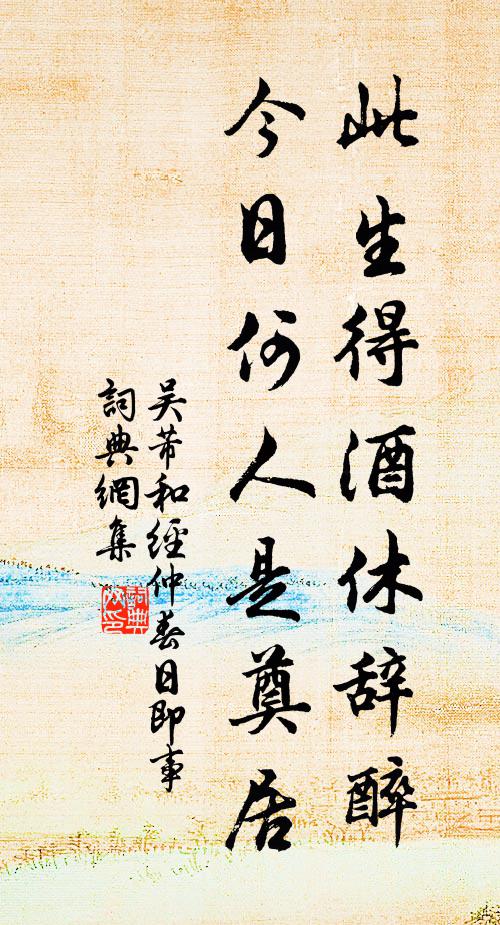 此生得酒休辞醉
今日何人是奠居
吴芾和經仲春日即事
詞典網集